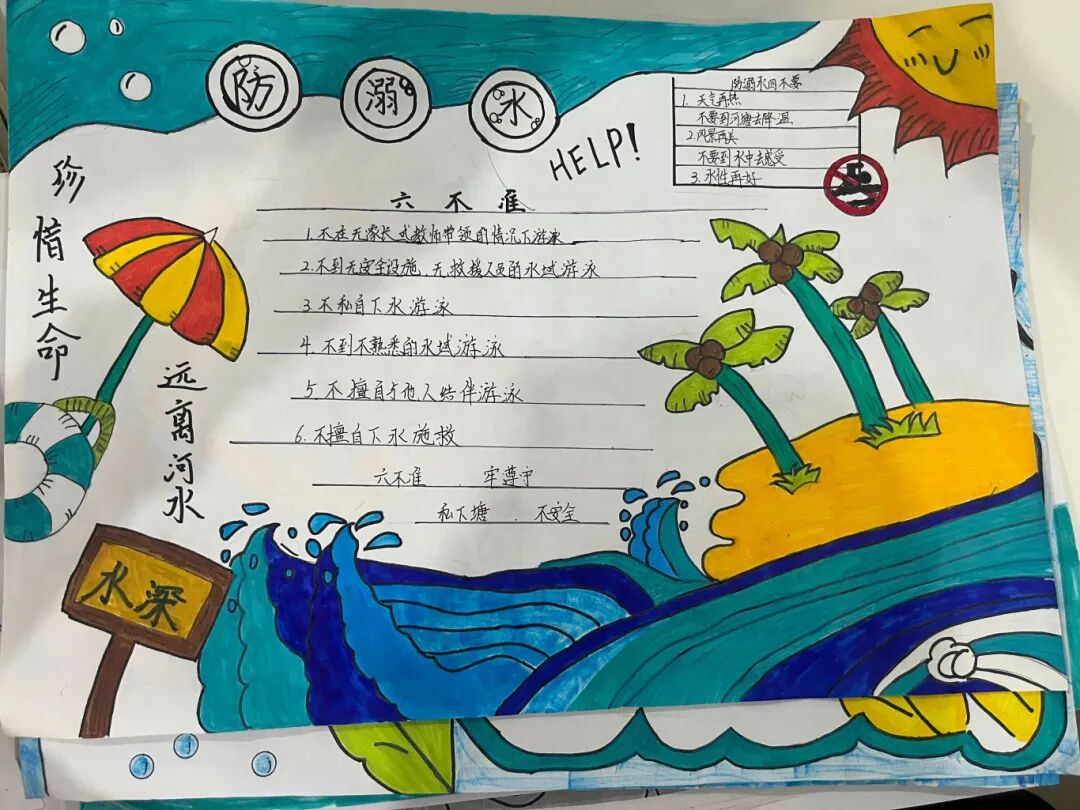 防溺水
HELP!
防溺水四不要
1. 天气再热
不要到河塘去降温
2.风景再美
不要到水中去感受
3. 水性再好
珍惜生命
远离河水
六不准
1.不在无家长或教师带领的情况下游泳
2.不到无安全设施、无救援人员的水域游泳
3 不私自下水游泳
4. 不到不熟悉的水域游泳
5 不擅自与他人结伴游泳
6.不擅自下水施救
六不准 . 牢遵守
私下塘 . 不安全
水深